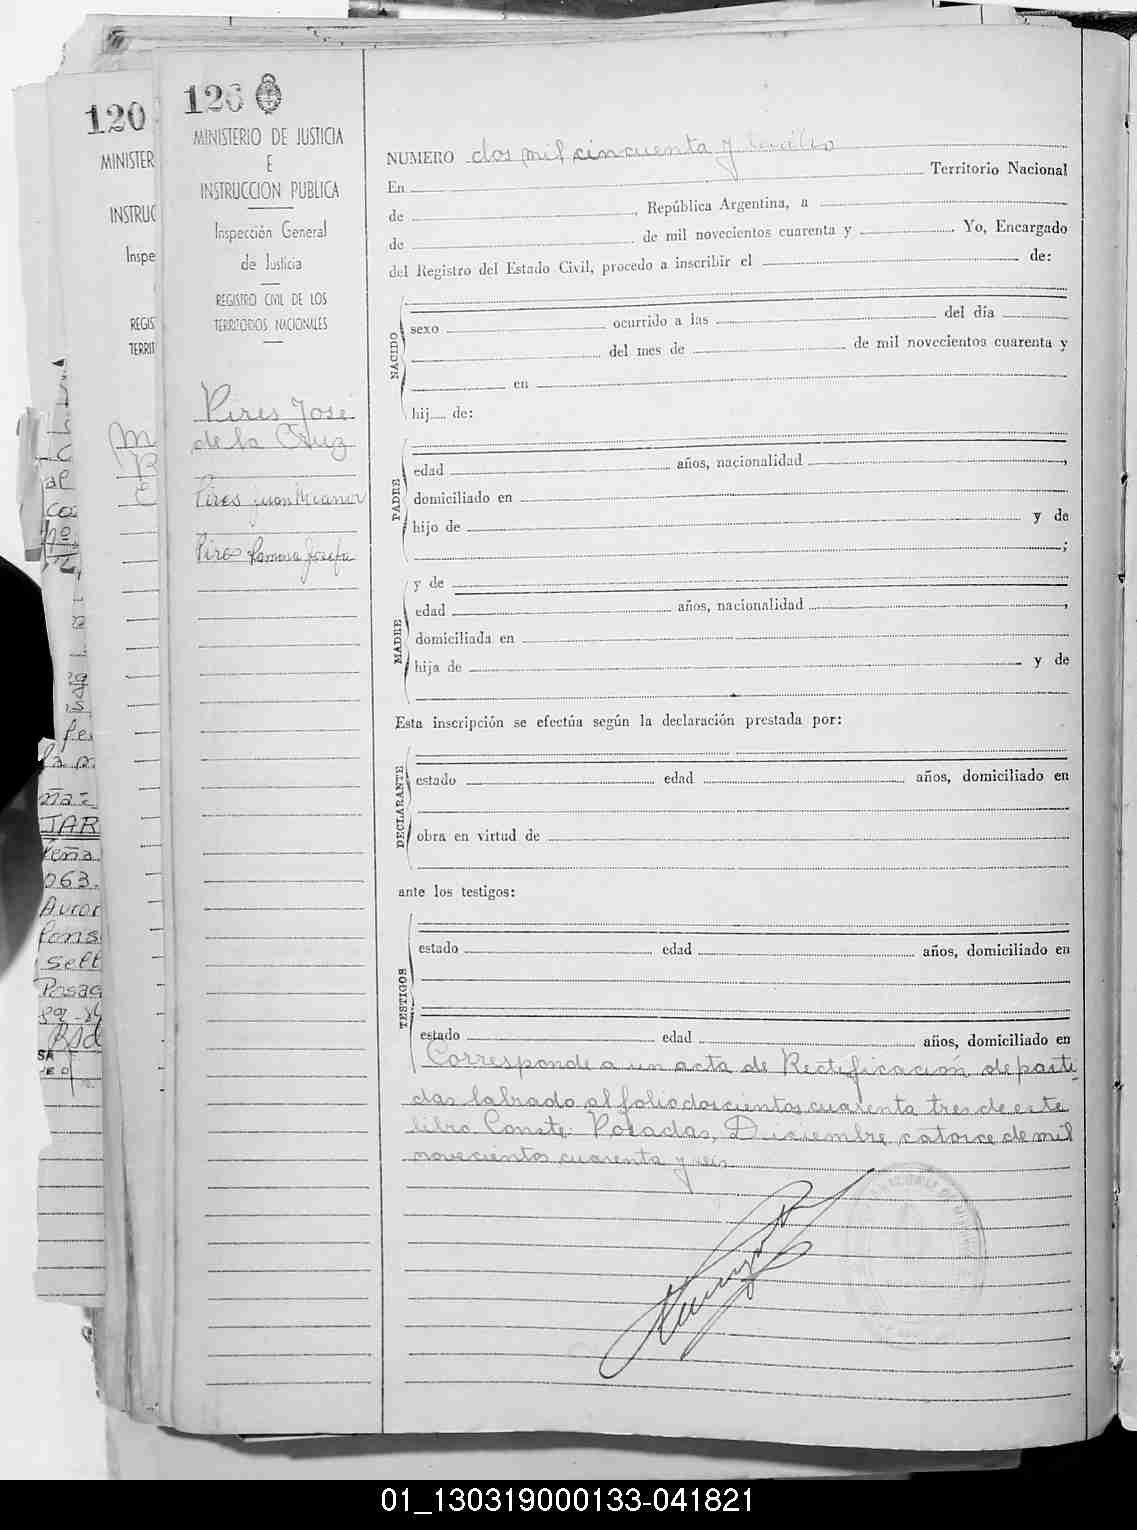 120
MINISTER
INSTRUC
Inspe
REGIS
TERRIT
al
fe
JAR
063.
Auror
Sell
Posac
SA
126
MINISTERIO DE JUSTICIA
E
INSTRUCCION PUBLICA
Inspección General
de Justicia
REGISTRO CIVIL DE LOS
TERRITORIOS NACIONALES
Pires José
de la Cruz
Pires Juan
Pires Ramona Josefa
NUMERO dos mil cincuenta y
En Territorio Nacional
de , República Argentina, a
de de mil novecientos cuarenta y . Yo, Encargado
del Registro del Estado Civil, procedo a inscribir el de:
NACIDO
sexo ocurrido a las del día
del mes de de mil novecientos cuarenta y
en
hij de:
PADRE
edad años, nacionalidad ,
domiciliado en
hijo de y de
;
MADRE
y de
edad años, nacionalidad ,
domiciliada en
hija de y de
Esta inscripción se efectúa según la declaración prestada por:
DECLARANTE
estado edad años, domiciliado en
obra en virtud de
ante los testigos:
TESTIGOS
estado edad años, domiciliado en
estado edad años, domiciliado en
Corresponde a un acta de Rectificación de parti-
das labrado al folio doscientos cuarenta tres de este
libro. Conste. Posadas, Diciembre catorce de mil
novecientos cuarenta y seis.
01_130319000133-041821